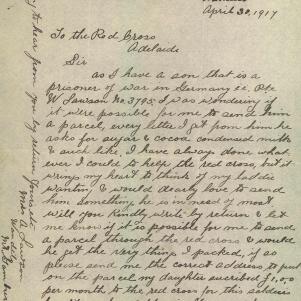 April 30, 1917
To the Red Cross
Adelaide
Sir
as I have a son that is a
prisoner of war in Germany ie. Pte
W Lawson No. 3795; I was wondering if
it were possible for me to send him
a parcel, every letter I got from him he
asks for sugar & cocoa condensed milk
& such like. I have always done what
ever I could to help the red cross, but it
wrings my heart to think of my laddie
wanting, & would dearly love to send
him something he is in need of most
will you kindly write by return & let
me know if it is possible for me to send
a parcel through the red cross & would
he get the very things I packed, if so
please send me the correct address to put
on the parcel my daughter sacrificed £1,00
per month to the red cross for this laddies
to hear from you by return yours etc
Mrs A. Lawson
Mt Gambier